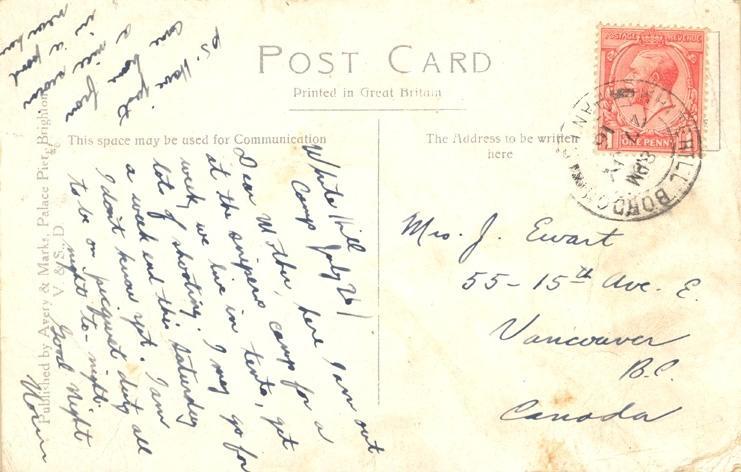 POST CARD
Printed in Great Britain
This space may be used for Communication
The Address to be written
here
POSTAGE REVENUE
ONE PENNY
WHITEHILL BORDON
8 PM
Mrs. J. Ewart
55-15th Ave. E.
Vancouver
B.C.
Canada
White Hill
Camp July 26/
Dear Mother, here I am out
at the snipers camp for a
week, we live in tents, get
lot of shooting. I may go for
a week end this Saturday
I don't know yet. I am
to be on picquet duty all
night to-night.
Good Night
P.S. Have just
come from
a nice swim
in a pond
near here
Published by Avery & Marks, Palace Pier, Brighton
V. & S., D.